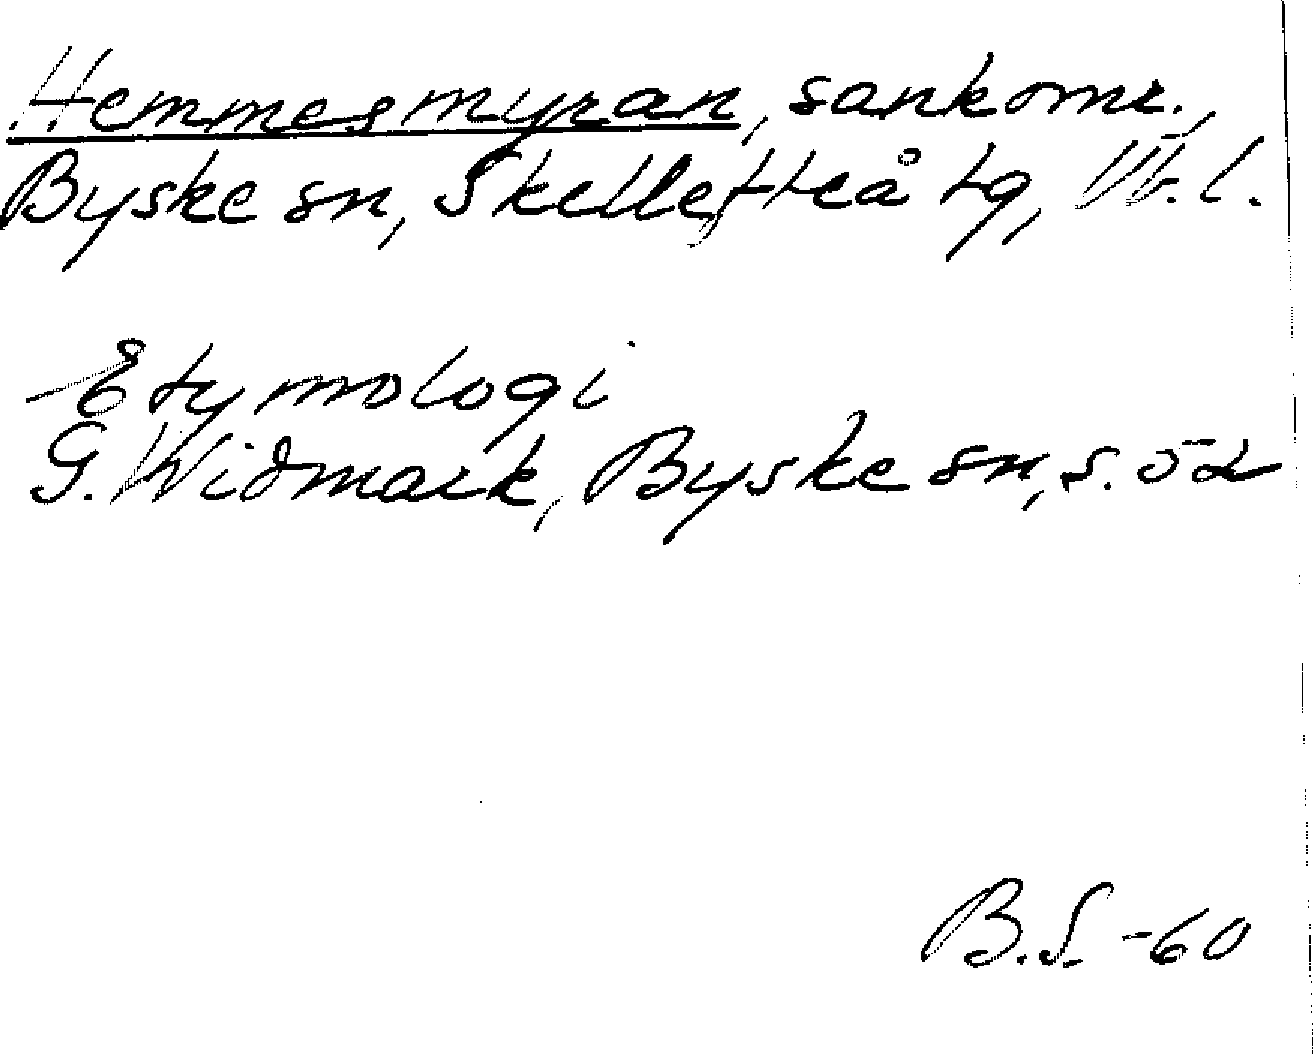 Hemmesmyran, sankomr.,
Byske sn, Skellefteå tg, Vb. l.
Etymologi
G. Widmark, Byske sn, s. 52
B.S. -60